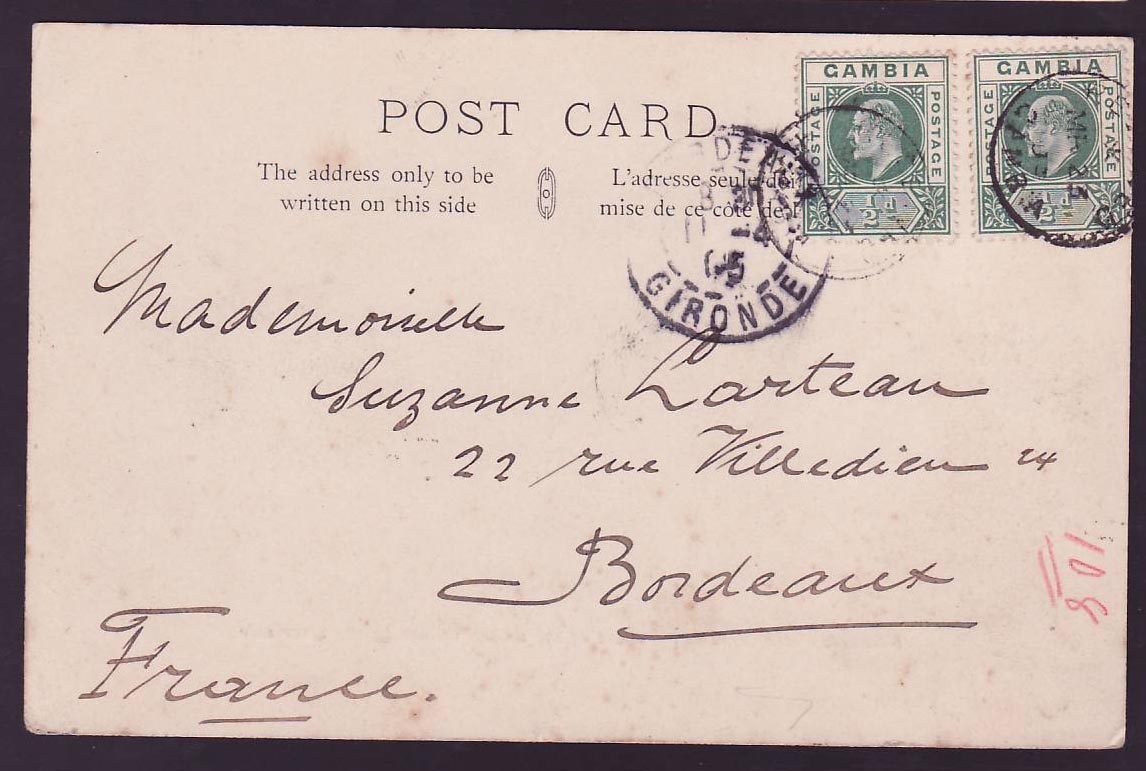 GAMBIA GAMBIA
POSTAGE POSTAGE POSTAGE POSTAGE
½d ½d
POST CARD
The address only to be
written on this side
L'adresse seule doi
mise de ce côté de
GIRONDE
Mademoiselle
Suzanne Larteau
22 rue Villedieu 24
Bordeaux
France.
108